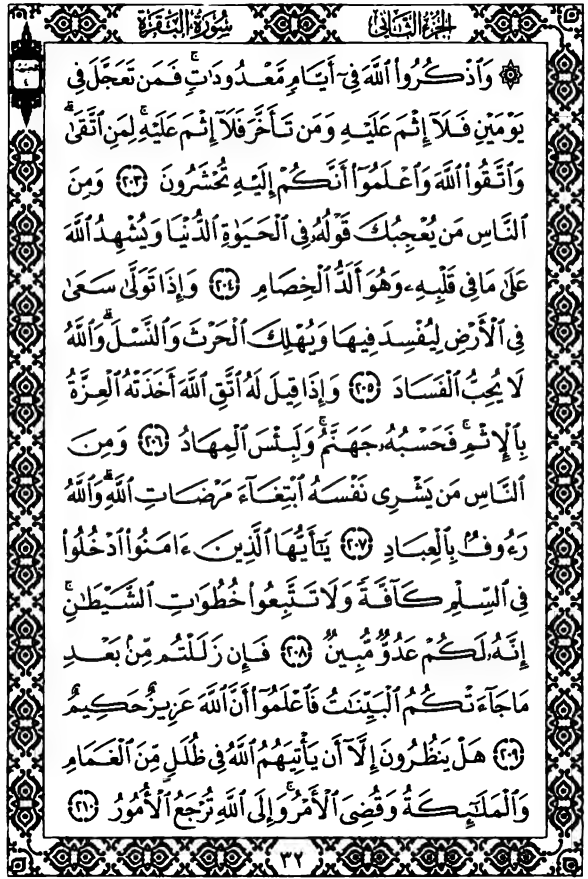 الجزء الثاني
سورة البقرة
الحزب
٤
۞ وَٱذْكُرُوا۟ ٱللَّهَ فِىٓ أَيَّامٍ مَّعْدُودَٰتٍۚ فَمَن تَعَجَّلَ فِى
يَوْمَيْنِ فَلَآ إِثْمَ عَلَيْهِ وَمَن تَأَخَّرَ فَلَآ إِثْمَ عَلَيْهِۚ لِمَنِ ٱتَّقَىٰۗ
وَٱتَّقُوا۟ ٱللَّهَ وَٱعْلَمُوٓا۟ أَنَّكُمْ إِلَيْهِ تُحْشَرُونَ ٢٠٣ وَمِنَ
ٱلنَّاسِ مَن يُعْجِبُكَ قَوْلُهُۥ فِى ٱلْحَيَوٰةِ ٱلدُّنْيَا وَيُشْهِدُ ٱللَّهَ
عَلَىٰ مَا فِى قَلْبِهِۦ وَهُوَ أَلَدُّ ٱلْخِصَامِ ٢٠٤ وَإِذَا تَوَلَّىٰ سَعَىٰ
فِى ٱلْأَرْضِ لِيُفْسِدَ فِيهَا وَيُهْلِكَ ٱلْحَرْثَ وَٱلنَّسْلَۗ وَٱللَّهُ
لَا يُحِبُّ ٱلْفَسَادَ ٢٠٥ وَإِذَا قِيلَ لَهُ ٱتَّقِ ٱللَّهَ أَخَذَتْهُ ٱلْعِزَّةُ
بِٱلْإِثْمِۚ فَحَسْبُهُۥ جَهَنَّمُۚ وَلَبِئْسَ ٱلْمِهَادُ ٢٠٦ وَمِنَ
ٱلنَّاسِ مَن يَشْرِى نَفْسَهُ ٱبْتِغَآءَ مَرْضَاتِ ٱللَّهِۗ وَٱللَّهُ
رَءُوفٌۢ بِٱلْعِبَادِ ٢٠٧ يَٰٓأَيُّهَا ٱلَّذِينَ ءَامَنُوا۟ ٱدْخُلُوا۟
فِى ٱلسِّلْمِ كَآفَّةً وَلَا تَتَّبِعُوا۟ خُطُوَٰتِ ٱلشَّيْطَٰنِۚ
إِنَّهُۥ لَكُمْ عَدُوٌّ مُّبِينٌ ٢٠٨ فَإِن زَلَلْتُم مِّنۢ بَعْدِ
مَا جَآءَتْكُمُ ٱلْبَيِّنَٰتُ فَٱعْلَمُوٓا۟ أَنَّ ٱللَّهَ عَزِيزٌ حَكِيمٌ
٢٠٩ هَلْ يَنظُرُونَ إِلَّآ أَن يَأْتِيَهُمُ ٱللَّهُ فِى ظُلَلٍ مِّنَ ٱلْغَمَامِ
وَٱلْمَلَٰٓئِكَةُ وَقُضِىَ ٱلْأَمْرُۚ وَإِلَى ٱللَّهِ تُرْجَعُ ٱلْأُمُورُ ٢١٠
٣٢